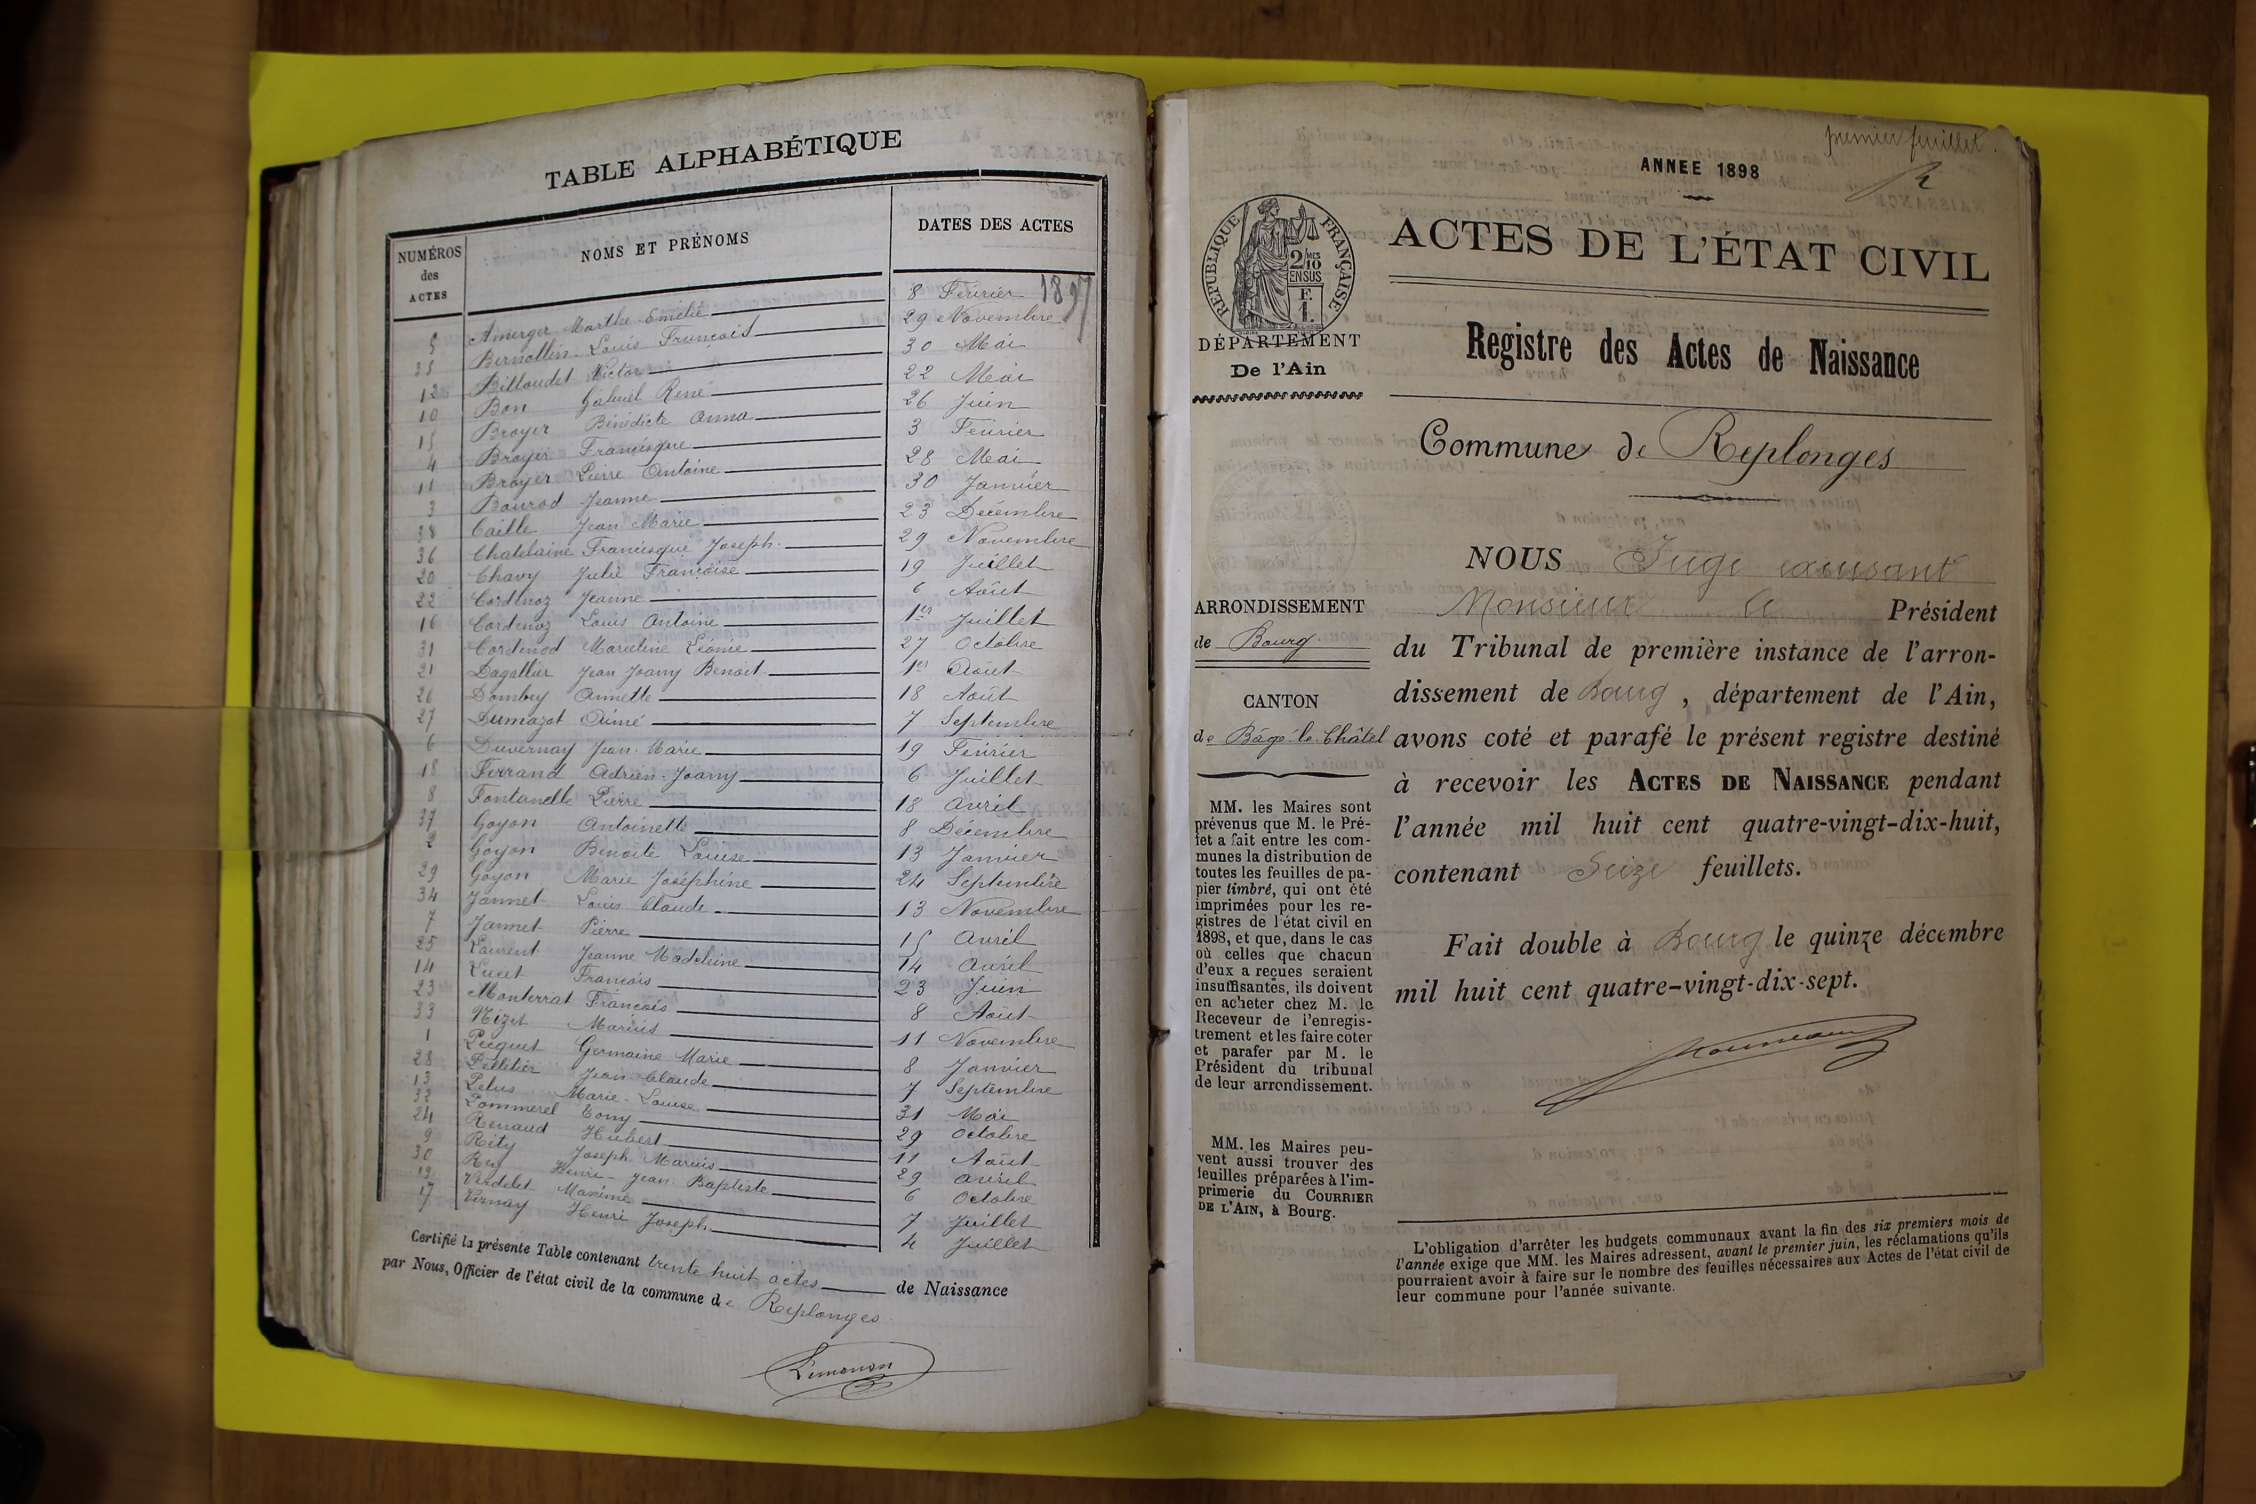 TABLE ALPHABÉTIQUE
NUMÉROS des ACTES
NOMS ET PRÉNOMS
DATES DES ACTES
1897
5 Amerger Marthe Emélie 8 Février
35 Bernollin Louis François 29 Novembre
12 Billoudet Victor 30 Mai
10 Bon Gabriel René 22 Mai
15 Broyer Bénédicte Anna 26 Juin
4 Broyer Francisque 3 Février
11 Broyer Pierre Antoine 28 Mai
3 Bourod Jeanne 30 Janvier
38 Caille Jean Marie 23 Décembre
36 Chatelaine Francisque Joseph 29 Novembre
20 Chavy Julie Françoise 19 Juillet
22 Cordenoz Jeanne 6 Août
16 Cordenoz Louis Antoine 1er Juillet
31 Cordenod Marceline Léonie 27 Octobre
21 Dagallier Jean Joany Benoit 1er Août
26 Dombey Annette 18 Août
27 Dumazot Aimé 7 Septembre
6 Duvernay Jean Marie 19 Février
18 Ferrand Adrien Joany 6 Juillet
8 Fontanelle Pierre 18 Avril
37 Goyon Antoinette 8 Décembre
2 Goyon Benoite Louise 13 Janvier
29 Goyon Marie Joséphine 24 Septembre
34 Jannet Louis Claude 13 Novembre
7 Jannet Pierre 15 Avril
25 Laurent Jeanne Madeleine 14 Avril
14 Lucet François 23 Juin
23 Monterrat François 8 Août
33 Nizet Marius 11 Novembre
1 Pecquet Germaine Marie 8 Janvier
28 Pelletier Jean Claude 7 Septembre
13 Pelus Marie-Louise 31 Mai
32 Pommerel Tony 29 Octobre
24 Renaud Hubert 11 Août
9 Rety Joseph Marius 29 Avril
30 Rey Henri-Jean Baptiste 6 Octobre
19 Verdelet Maxime 7 Juillet
17 Vernay Henri Joseph 4 Juillet
Certifié la présente Table contenant trente huit actes de Naissance
par Nous, Officier de l'état civil de la commune de Replonges
Limonon
premier feuillet.
ANNEE 1898
RÉPUBLIQUE FRANÇAISE
2/10 MES
EN SUS
F.
1.
DÉPARTEMENT
De l'Ain
ARRONDISSEMENT
de Bourg
CANTON
de Bâgé-le-Châtel
MM. les Maires sont
prévenus que M. le Pré-
fet a fait entre les com-
munes la distribution de
toutes les feuilles de pa-
pier timbré, qui ont été
imprimées pour les re-
gistres de l'état civil en
1898, et que, dans le cas
où celles que chacun
d'eux a reçues seraient
insuffisantes, ils doivent
en acheter chez M. le
Receveur de l'enregis-
trement et les faire coter
et parafer par M. le
Président du tribunal
de leur arrondissement.
MM. les Maires peu-
vent aussi trouver des
feuilles préparées à l'im-
primerie du COURRIER
DE L'AIN, à Bourg.
ACTES DE L'ÉTAT CIVIL
Registre des Actes de Naissance
Commune de Replonges
NOUS Juge excusant
Monsieur le Président
du Tribunal de première instance de l'arron-
dissement de Bourg, département de l'Ain,
avons coté et parafé le présent registre destiné
à recevoir les ACTES DE NAISSANCE pendant
l'année mil huit cent quatre-vingt-dix-huit,
contenant Seize feuillets.
Fait double à Bourg le quinze décembre
mil huit cent quatre-vingt-dix-sept.
L'obligation d'arrêter les budgets communaux avant la fin des six premiers mois de
l'année exige que MM. les Maires adressent, avant le premier juin, les réclamations qu'ils
pourraient avoir à faire sur le nombre des feuilles nécessaires aux Actes de l'état civil de
leur commune pour l'année suivante.